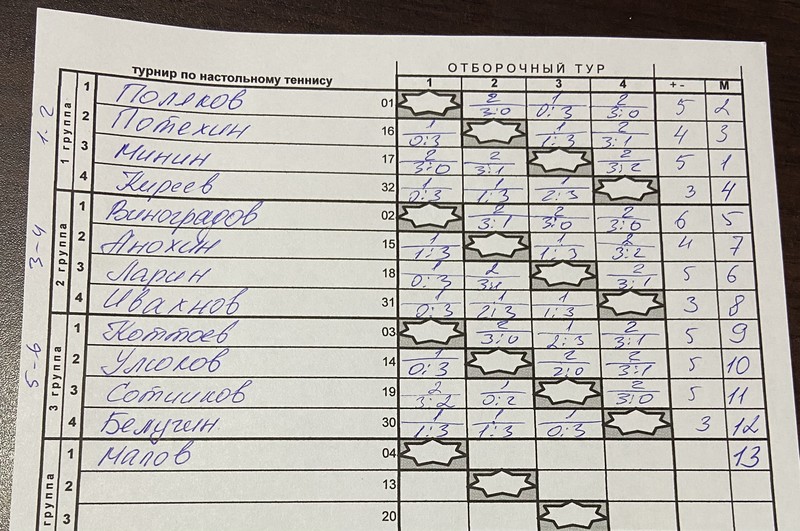 турнир по настольному теннису ОТБОРОЧНЫЙ ТУР
1 2 3 4 + - М
1-2 1 группа
1 Поляков 01 2 3:0 1 0:3 2 3:0 5 2
2 Потехин 16 1 0:3 1 1:3 2 3:1 4 3
3 Минин 17 2 3:0 2 3:1 2 3:2 5 1
4 Киреев 32 1 0:3 1 1:3 1 2:3 3 4
3-4 2 группа
1 Виноградов 02 2 3:1 2 3:0 2 3:0 6 5
2 Анохин 15 1 1:3 1 1:3 2 3:2 4 7
3 Ларин 18 1 0:3 2 3:1 2 3:1 5 6
4 Ивахнов 31 1 0:3 1 2:3 1 1:3 3 8
5-6 3 группа
1 Коттоев 03 2 3:0 1 2:3 2 3:1 5 9
2 14 1 0:3 2 2:0 2 3:1 5 10
3 Сотников 19 2 3:2 1 0:2 2 3:0 5 11
4 Белугин 30 1 1:3 1 1:3 1 0:3 3 12
группа
1 Малов 04 13
2 13
3 20